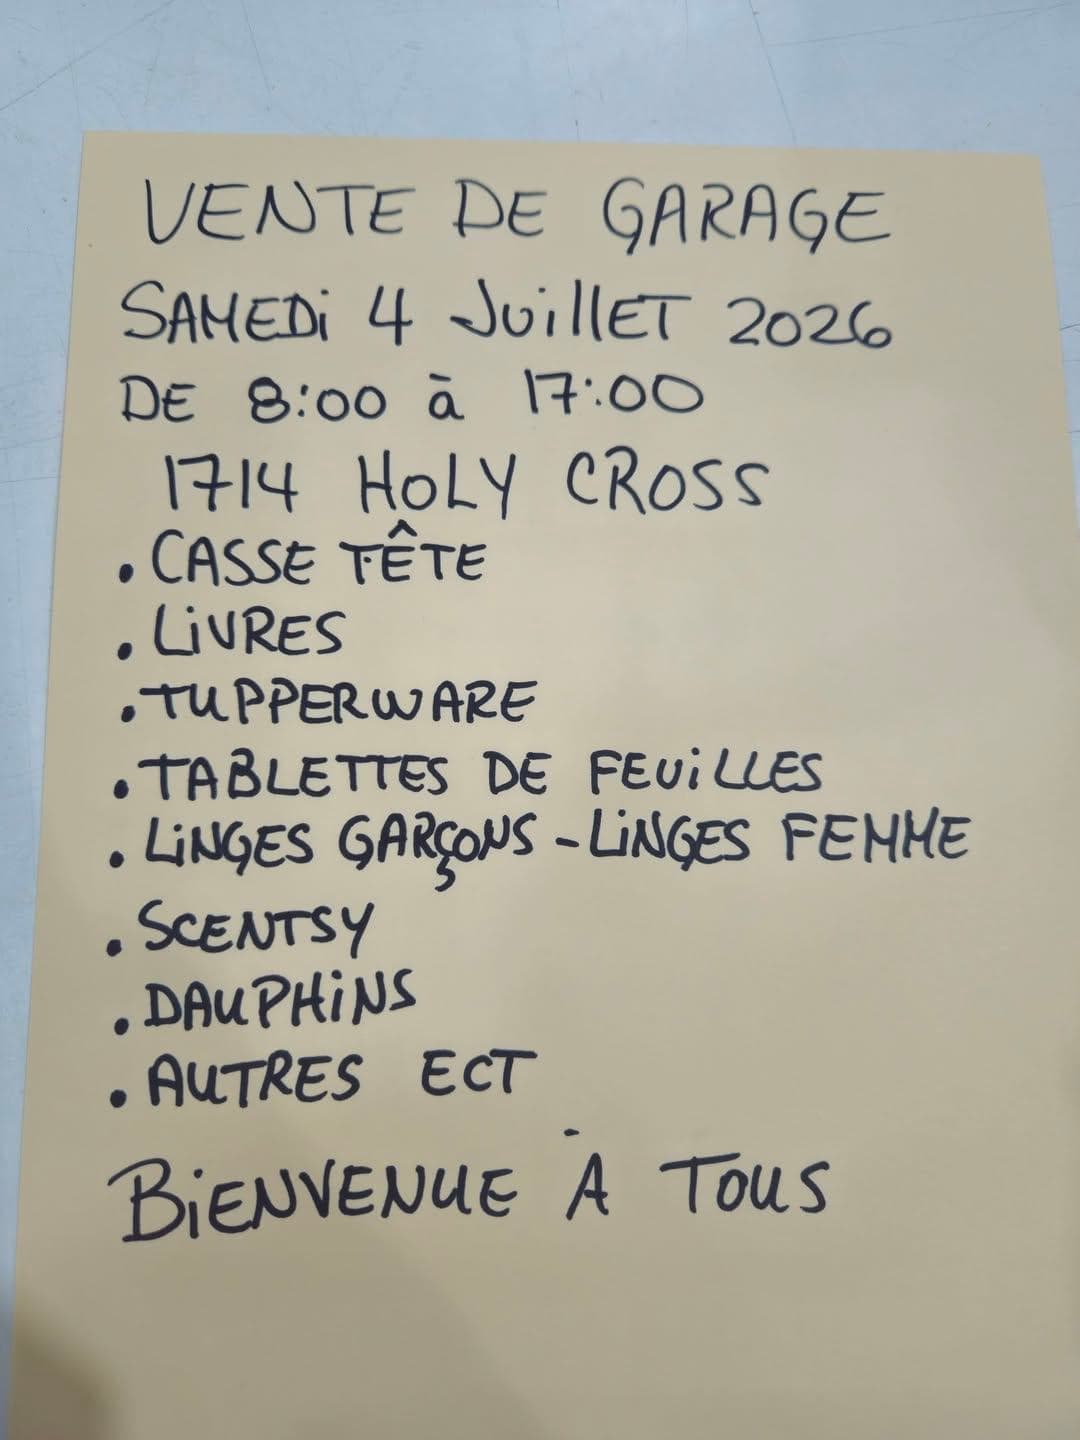 VENTE DE GARAGE
SAMEDI 4 JUILLET 2026
DE 8:00 à 17:00
1714 HOLY CROSS
• CASSE TÊTE
• LIVRES
• TUPPERWARE
• TABLETTES DE FEUILLES
• LINGES GARÇONS - LINGES FEMME
• SCENTSY
• DAUPHINS
• AUTRES ECT
BIENVENUE À TOUS